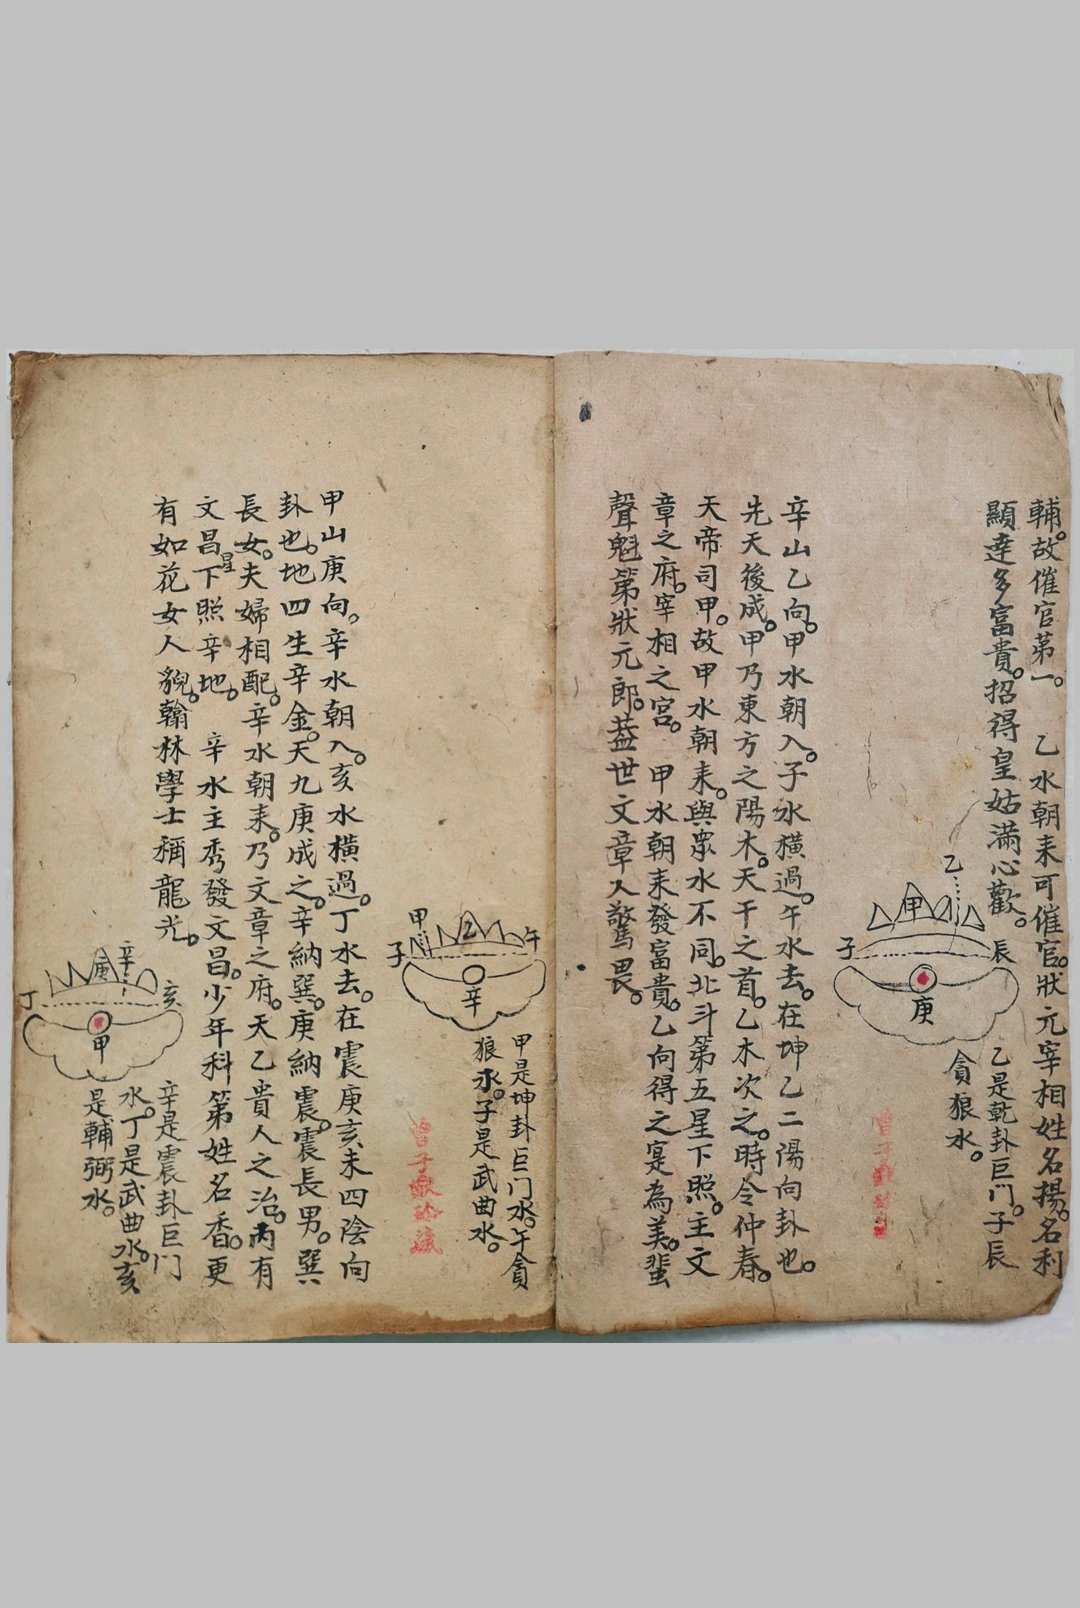 輔。故催官第一。 乙水朝来可催官。狀元宰相姓名揚。名利
顯達多富貴。招得皇姑滿心歡。
乙
甲
子
辰
庚
乙是乾卦巨门。子辰
貪狼水。
辛山乙向。甲水朝入。子水橫過。午水去。在坤乙二陽向卦也。
先天後成。甲乃東方之陽木。天干之首。乙木次之。時令仲春。
天帝司甲。故甲水朝来。與眾水不同。北斗第五星下照。主文
章之府。宰相之宮。 甲水朝来發富貴。乙向得之寔為美。蜚
聲魁第狀元郎。蓋世文章人驚畏。
甲
乙
午
子
辛
甲是坤卦巨门水。午貪
狼水。子是武曲水。
甲山庚向。辛水朝入。亥水橫過。丁水去。在震庚亥未四陰向
卦也。地四生辛金。天九庚成之。辛納巽。庚納震。震長男。巽
長女。夫婦相配。辛水朝来。乃文章之府。天乙貴人之治。丙有
文昌星下照辛地。 辛水主秀發文昌。少年科第姓名香。更
有如花女人貌。翰林學士稱龍光。
辛
庚
丁
亥
甲
辛是震卦巨门
水。丁是武曲水。亥
是輔弼水。